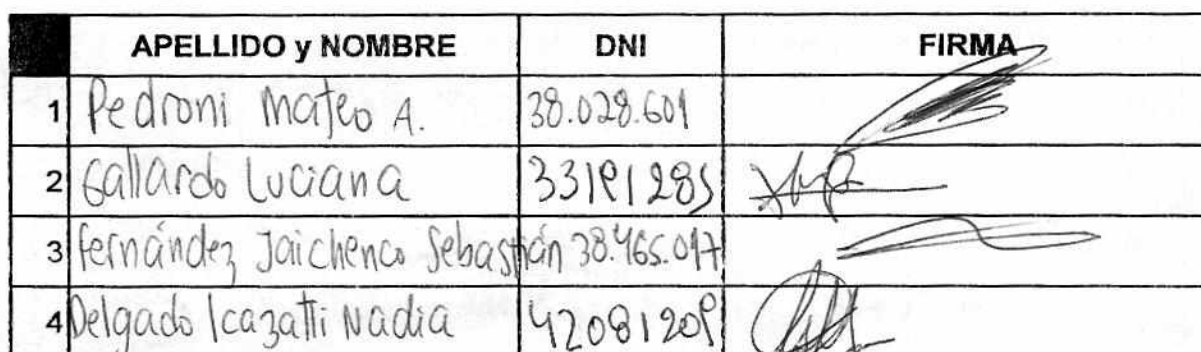 APELLIDO y NOMBRE DNI FIRMA
1 Pedroni Mateo A. 38.028.601
2 Gallardo Luciana 33191285
3 Fernández Jaichenco Sebastián 38.465.017
4 Delgado Icazatti Nadia 42081209